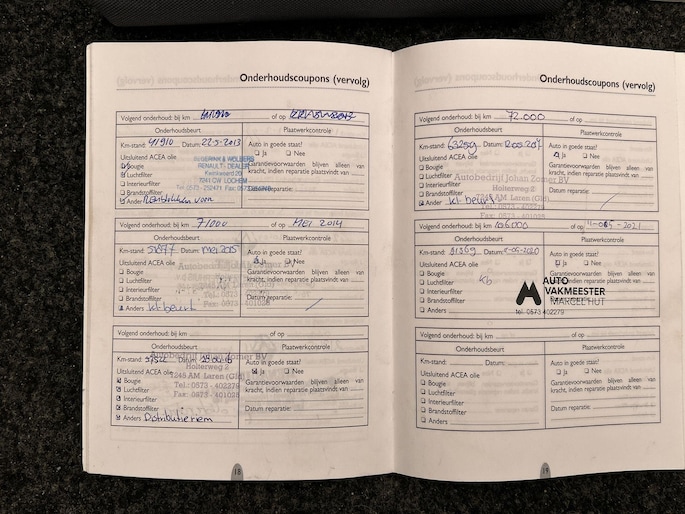 Onderhoudscoupons (vervolg)
Volgend onderhoud: bij km of op
Onderhoudsbeurt Plaatwerkcontrole
Km-stand: 41910 Datum: 22-5-2013 Auto in goede staat?
Uitsluitend ACEA olie Ja Nee
Bougie Garantievoorwaarden blijven alleen van
Luchtfilter kracht, indien reparatie plaatsvindt van
Interieurfilter
Brandstoffilter Datum reparatie:
Anders Remblokken voor
WOLBERS
RENAULT - DEALER
7241 CW LOCHEM
Volgend onderhoud: bij km 71000 of op MEI 2014
Onderhoudsbeurt Plaatwerkcontrole
Km-stand: Datum: mei 2015 Auto in goede staat?
Uitsluitend ACEA olie Ja Nee
Bougie Garantievoorwaarden blijven alleen van
Luchtfilter kracht, indien reparatie plaatsvindt van
Interieurfilter
Brandstoffilter Datum reparatie:
Anders kl. beurt
Volgend onderhoud: bij km of op
Onderhoudsbeurt Plaatwerkcontrole
Km-stand: Datum: Auto in goede staat?
Uitsluitend ACEA olie Ja Nee
Bougie Garantievoorwaarden blijven alleen van
Luchtfilter kracht, indien reparatie plaatsvindt van
Interieurfilter
Brandstoffilter Datum reparatie:
Anders Distributieriem
Autobedrijf Johan Zomer BV
Holterweg 2
7245 AM Laren (Gld)
Tel.: 0573 - 402279
Fax: 0573 - 401028
18
Onderhoudscoupons (vervolg)
Volgend onderhoud: bij km 72.000 of op
Onderhoudsbeurt Plaatwerkcontrole
Km-stand: Datum: Auto in goede staat?
Uitsluitend ACEA olie Ja Nee
Bougie Garantievoorwaarden blijven alleen van
Luchtfilter kracht, indien reparatie plaatsvindt van
Interieurfilter
Brandstoffilter Datum reparatie:
Anders kl. beurt
Autobedrijf Johan Zomer BV
Holterweg 2
7245 AM Laren (Gld)
Tel.: 0573 - 402279
Fax: 0573 - 401028
Volgend onderhoud: bij km 106000 of op
Onderhoudsbeurt Plaatwerkcontrole
Km-stand: Datum: Auto in goede staat?
Uitsluitend ACEA olie Ja Nee
Bougie Garantievoorwaarden blijven alleen van
Luchtfilter kracht, indien reparatie plaatsvindt van
Interieurfilter
Brandstoffilter
Anders
Kb
AUTO
VAKMEESTER
MARCEL HUT
tel. 0573 402279
Volgend onderhoud: bij km of op
Onderhoudsbeurt Plaatwerkcontrole
Km-stand: Datum: Auto in goede staat?
Uitsluitend ACEA olie Ja Nee
Bougie Garantievoorwaarden blijven alleen van
Luchtfilter kracht, indien reparatie plaatsvindt van
Interieurfilter
Brandstoffilter Datum reparatie:
Anders
19